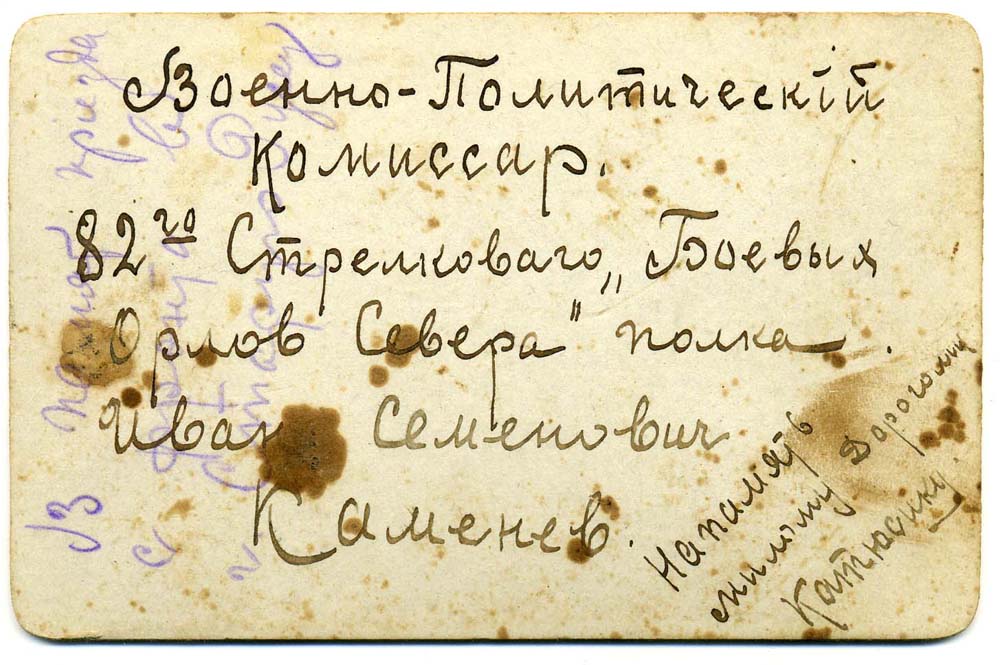 Военно-Политическій
Комиссар.
82го Стрелковаго „Боевых
Орлов Севера" полка.
Иван Семенович
Каменев.
На память
милому Дорогому
Катюсику.
В память приезда
с фронта в
г. Старую Руссу